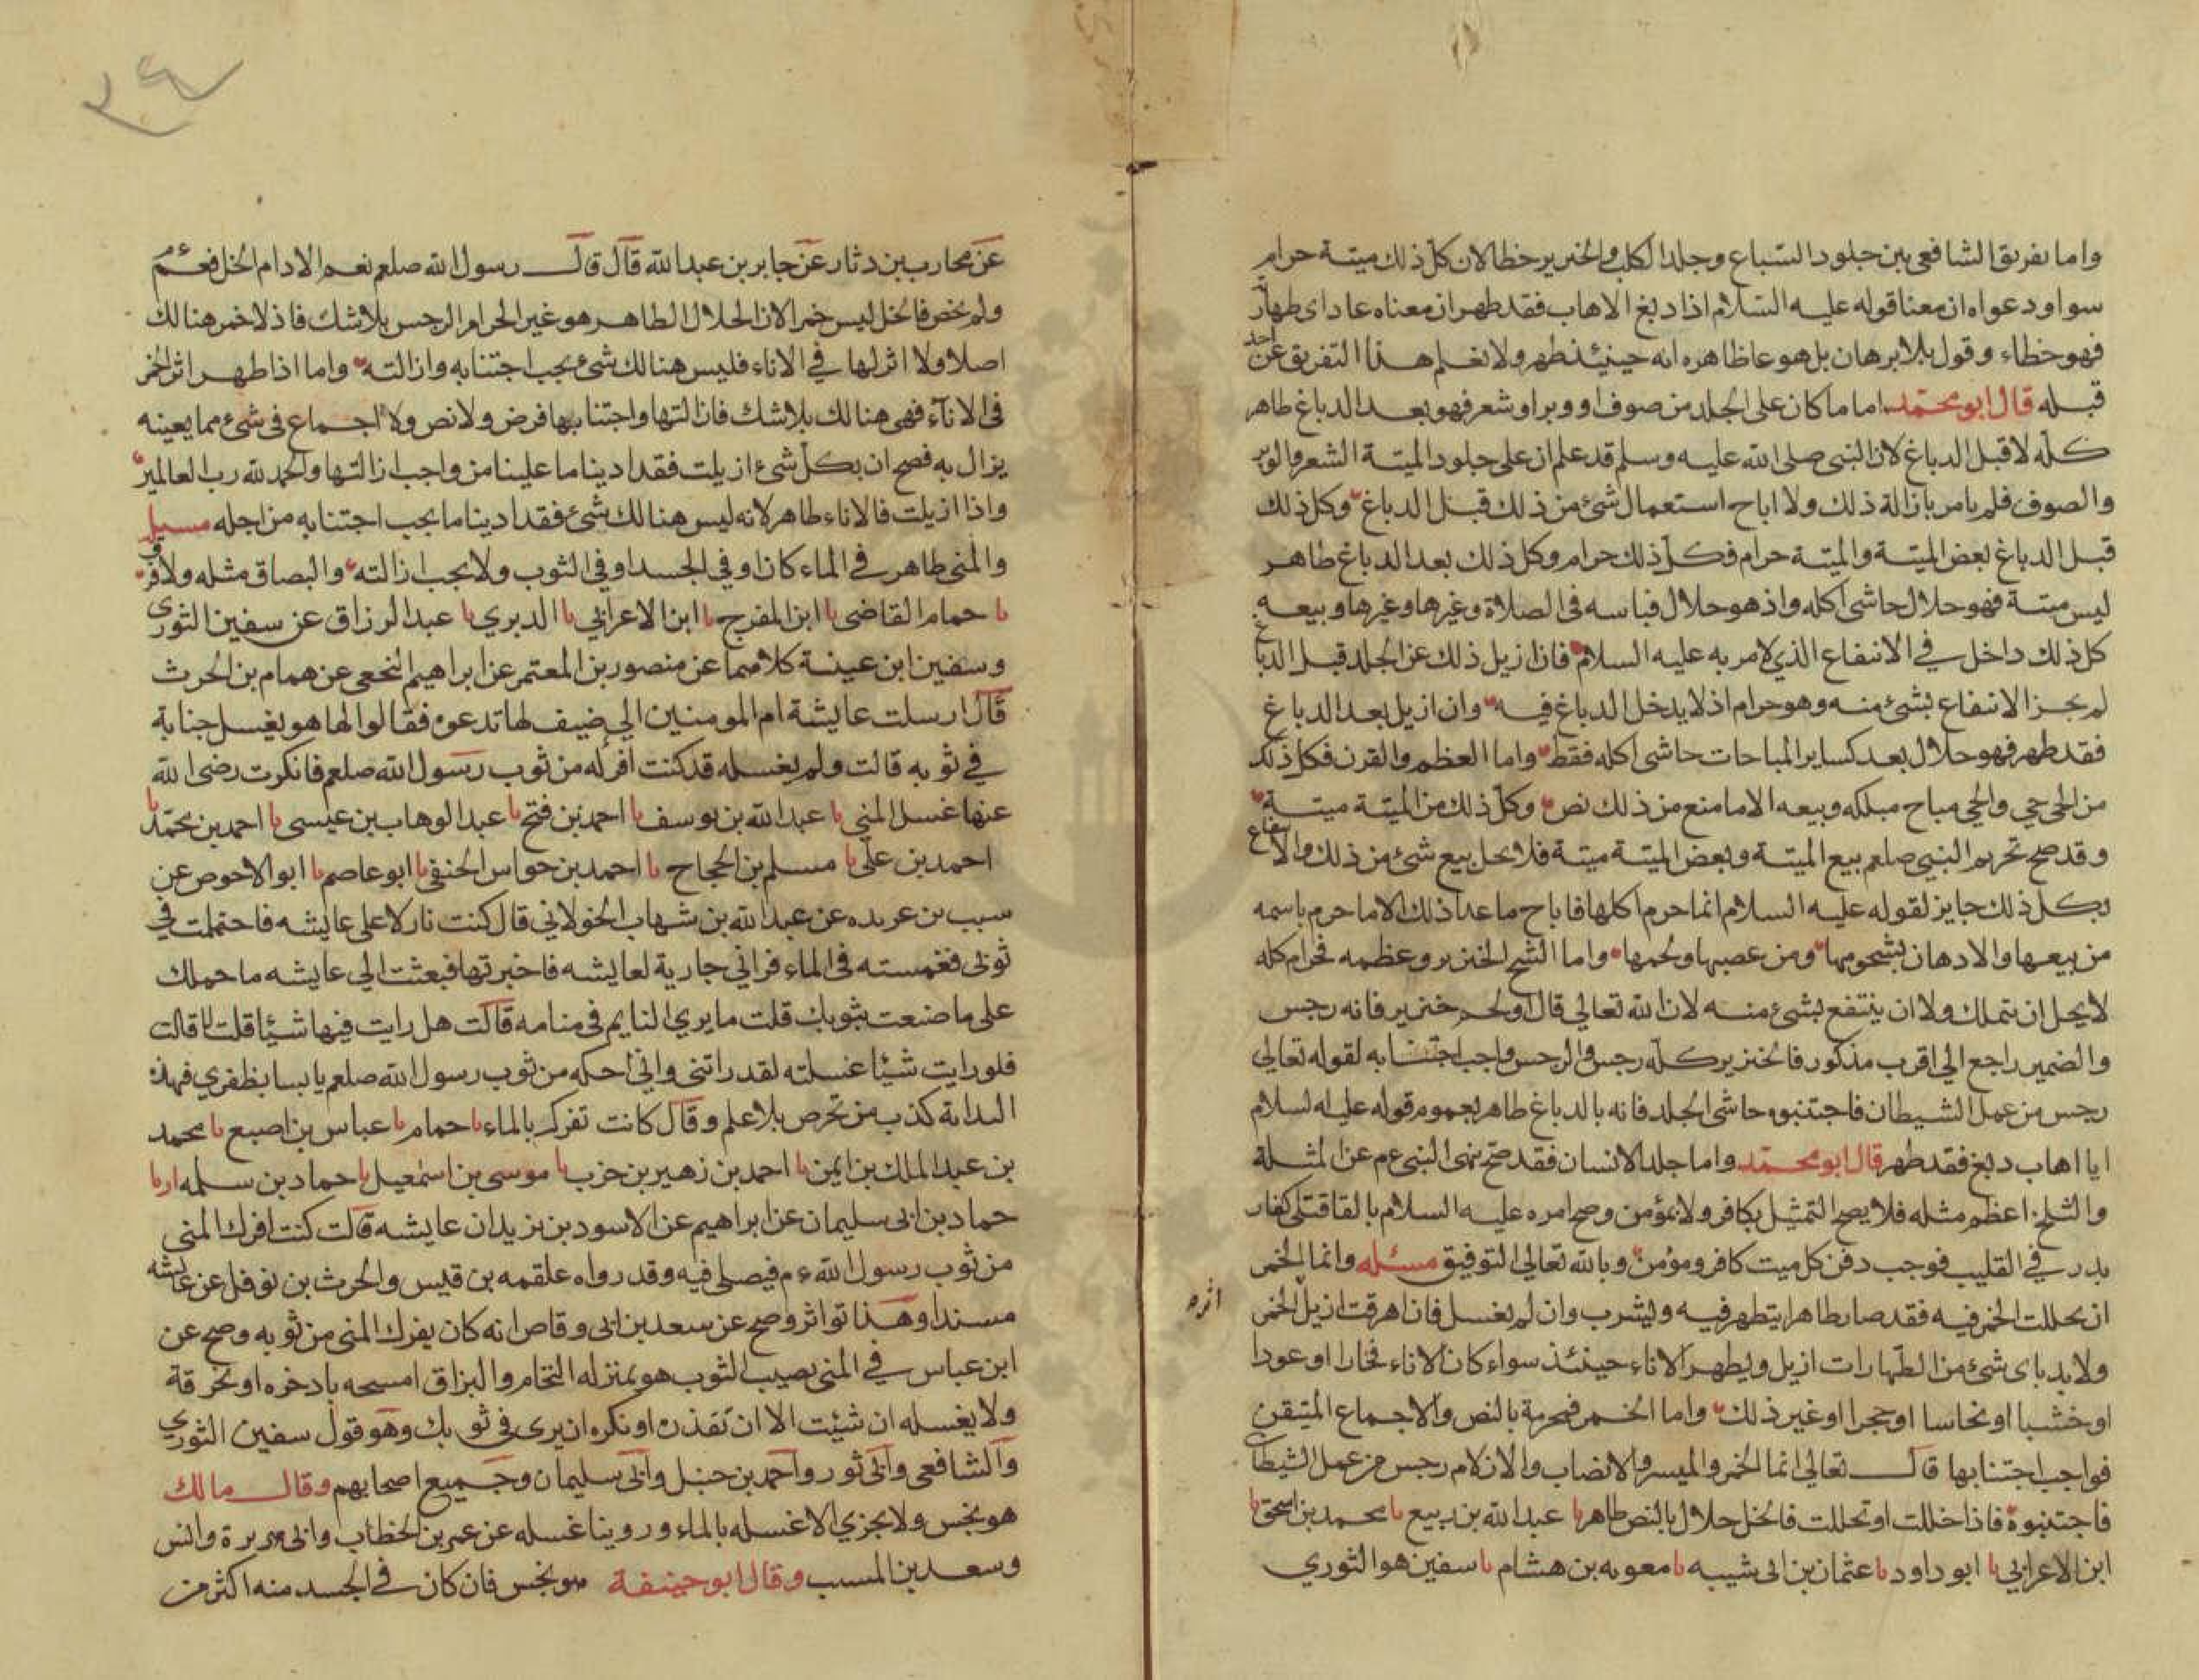 واما تفريق الشافعي بين جلود السباع وجلد الكلب والخنزير خطا لان كل ذلك ميتة حرام
سوا ودعواه ان معنا قوله عليه السلام اذا دبغ الاهاب فقد طهر ان معناه عاد اى طهارته
فهو خطاء وقول بلا برهان بل هو عا ظاهره انه حينئذ طهر ولا نعلم هذا التفريق عن احد
قبله قال ابو محمد اما ما كان على الجلد من صوف او وبر او شعر فهو بعد الدباغ طاهر
كله لا قبل الدباغ لان النبى صلى الله عليه وسلم قد علم ان على جلود الميتة الشعر والوبر
والصوف فلم يامر بازالة ذلك ولا اباح استعمال شئ من ذلك قبل الدباغ وكل ذلك
قبل الدباغ بعض الميتة والميتة حرام فكل ذلك حرام وكل ذلك بعد الدباغ طاهر
ليس ميتة فهو حلال حاشى اكله واذ هو حلال فباسه فى الصلاة وغيرها وغيرها وبيعه
كل ذلك داخل في الانتفاع الذي لامر به عليه السلام فان ازيل ذلك عن الجلد قبل الدباغ
لم يجز الانتفاع بشئ منه وهو حرام اذ لا يدخل الدباغ فيه وان ازيل بعد الدباغ
فقد طهر فهو حلال بعد كساير المباحات حاشى اكله فقط واما العظم والقرن فكل ذلك
من الحى حي والحي مباح مبلكه وبيعه الا ما منع من ذلك نص وكل ذلك من الميتة ميتة
وقد صح تحريم النبي صلعم بيع الميتة وبعض الميتة ميتة فلا يحل بيع شئ من ذلك والانتفاع
بكل ذلك جايز لقوله عليه السلام انما حرم اكلها فاباح ما عدا ذلك الا ما حرم باسمه
من بيعها والادهان بشحومها ومن عصبها ولحمها واما الشح الخنزير وعظمه فحرام كله
لا يحل ان يتملك ولا ان ينتفع بشئ منه لان الله تعالي قال او لحم خنزير فانه رجس
والضمير راجع الي اقرب مذكور فالخنزير كله رجس والرجس واجب اجتنابه لقوله تعالي
رجس من عمل الشيطان فاجتنبوه حاشى الجلد فانه بالدباغ طاهر بعموم قوله عليه لسلام
ايا اهاب دبغ فقد طهر قال ابو محمد واما جلد الانسان فقد صح نهى النبى عم عن المثلة
والثلخ اعظم مثله فلا يصح التمثيل بكافر ولا بمؤمن وصح امره عليه السلام بالقا قتلى كفار
بدر في القليب فوجب دفن كل ميت كافر ومؤمن وبالله تعالي التوفيق مسئله وانما الخمر
اثره
ان تحللت الخمر فيه فقد صار طاهرا يتطهر فيه وليشرب وان لم يغسل فان اهرقت ازيل الخمر
ولا بد باى شئ من الطهارات ازيل ويطهر الاناء حينئذ سواء كان الاناء فخارا او عودا
او خشبا او نحاسا او حجرا او غير ذلك واما الخمر فمحرمة بالنص والاجماع المتيقن
فواجب اجتنابها قال تعالي انما الخمر والميسر والانصاب والازلام رجس من عمل الشيطان
فاجتنبوه فاذا خللت او تحللت فالخل حلال بالنص طاهر نا عبد الله بن ربيع نا محمد بن اسحق نا
ابن الاعرابي نا ابو داود نا عثمان بن ابى شيبه نا معويه بن هشام نا سفين هو الثوري
٢٤
عن محارب بن دثار عن جابر بن عبد الله قال قال رسول الله صلعم نعم الادام الخل فعم
ولم يخص فالخل ليس خمرا لان الحلال الطاهر هو غير الحرام الرجس بلا شك فاذ لا خمر هنالك
اصلا ولا اثر لها في الاناء فليس هنالك شئ يجب اجتنابه وازالته واما اذا ظهر اثر الخمر
فى الاناء فهى هنالك بلا شك فازالتها واجتنابها فرض ولا نص ولا اجماع فى شئ مما بعينه
يزال به فصح ان بكل شئ ازيلت فقد ادينا ما علينا من واجب ازالتها والحمد لله رب العالمين
واذا ازيلت فالاناء طاهر لانه ليس هنالك شئ فقد ادينا ما يجب اجتنابه من اجله
والمنى طاهر في الماء كان او في الجسد او في الثوب ولا يجب ازالته والبصاق مثله ولا فرق
نا حمام القاضى نا ابن المفرج نا ابن الاعرابي نا الدبري نا عبد الرزاق عن سفين الثوري
وسفين ابن عينة كلاهما عن منصور بن المعتمر عن ابراهيم النخعي عن همام بن الحرث
قال ارسلت عايشة ام المومنين الي ضيف لها تدعوه فقالوا لها هو يغسل جنابة
في ثوبه قالت ولم يغسله قد كنت افركه من ثوب رسول الله صلعم فانكرت رضى الله
عنها غسل المنى نا عبد الله بن يوسف نا احمد بن فتح نا عبد الوهاب بن عيسى نا احمد بن محمد نا
احمد بن علي نا مسلم بن الحجاج نا احمد بن جواس الحنفي نا ابو عاصم نا ابو الاحوص عن
سبب بن عربده عن عبد الله بن شهاب الخولاني قال كنت نازلا على عايشه فاحتملت في
ثوبى فغمسته فى الماء فراني جارية لعايشه فاخبرتها فبعثت الي عايشه ما حملك
على ما صنعت بثوبك قلت ما يري النايم فى منامه قالت هل رايت فيها شيئا قلت لا قالت
فلو رايت شيئا غسلته لقد راتنى واني احكه من ثوب رسول الله صلعم يابسا بظفري فهذه
كذب من تخرص بلا علم وقال كانت تفركه بالماء نا حمام نا عباس بن اصبع نا محمد
بن عبد الملك بن ايمن نا احمد بن زهير بن حرب نا موسى بن اسمعيل نا حماد بن سلمه انا
حماد بن ابى سليمان عن ابراهيم عن الاسود بن يزيد ان عايشه قالت كنت افرك المنى
من ثوب رسول الله ءم فيصلى فيه وقد رواه علقمه بن قيس والحرث بن نوفل عن عايشه
مسندا وهذا تواتر وصح عن سعد بن ابى وقاص انه كان يفرك المنى من ثوبه وصح عن
ابن عباس في المنى يصيب الثوب هو بمنزله النخام والبزاق امسحه باذخره او بخرقة
ولا يغسله ان شيئت الا ان تقذره او تكره ان يرى فى ثوبك وهو قول سفين الثوري
والشافعى وابى ثور واحمد بن حنبل وابى سليمان وجميع اصحابهم وقال مالك
هو نجس ولا يجزي الا غسله بالماء وروينا غسله عن عمر بن الخطاب وابى هريرة وانس
وسعد بن المسيب وقال ابو حينفة هو نجس فان كان في الجسد منه اكثر من